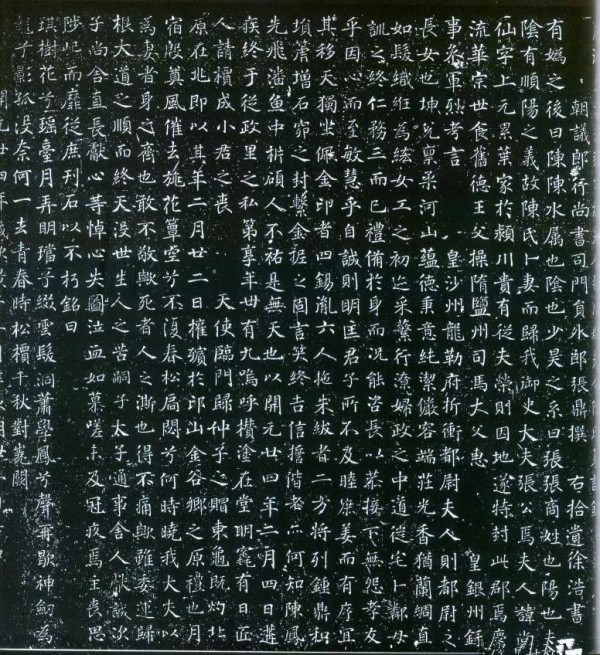 朝議郎行尚書司門員外郎張鼎撰 右拾遺徐浩書
有媯之後曰陳陳水屬也陰也少昊之系曰張張商姓也陽也夫
陰有順陽之義故陳氏卜妻而歸我御史大夫張公焉夫人諱尚
仙字上元累葉家於潁川貴有從夫榮則因地遂特封此郡焉慶
流華宗世食舊德王父操隋鹽州司馬大父惠 皇銀州錄
事參軍烈考言 皇沙州龍勒府折衝都尉夫人則都尉之
長女也坤兌稟柔河山蘊德秉意純潔儼容端莊光香猶蘭綢直
如髮織紝為紘女工之初迄采蘩行潦婦政之中道從宅卜鄰母
訓之終仁務三而已禮備於身而況能恣長以慕接下無怨孝友
乎因心而至敏慧乎自誠則明匡君子所不及睦庶姜而有序宜
其移天獨坐佩金印者四錫胤六人拖朱紱者二方將列鍾鼎和
塤箎增石窌之封繫金柅之固言笑終吉信擔偕老而何知陳鳳
先飛潘魚中枿碩人不祐是無天也以開元廿四年二月四日遘
疾終于從政里之私第享年卌有九嗚呼欑塗在堂明竁有日匠
人請槥成小君之喪 天使臨門歸仲子之賵東龜既灼北
原在兆即以其年二月廿二日權殯於邙山金谷鄉之原禮也月
宿殷奠風催去旐花簟空兮不復春松扃閟兮何時曉我大夫以
為妻者身之齊也敢不敬歟死者人之澌也得不痛歟雖委運歸
根大道之順而終天沒世生人之苦嗣子太子通事舍人獻誠次
子尚舍直長獻心等悼心失圖泣血如慕嗟未及冠夜焉主喪思
陟屺而靡從庶刊石以不朽銘曰
琪樹花兮瑤臺月弄明璫兮綴雲髮洞簫學鳳兮聲再歇神劍為
龍兮影孤沒奈何一去青春時松檟千秋對嵬闕
開元廿四年歲次